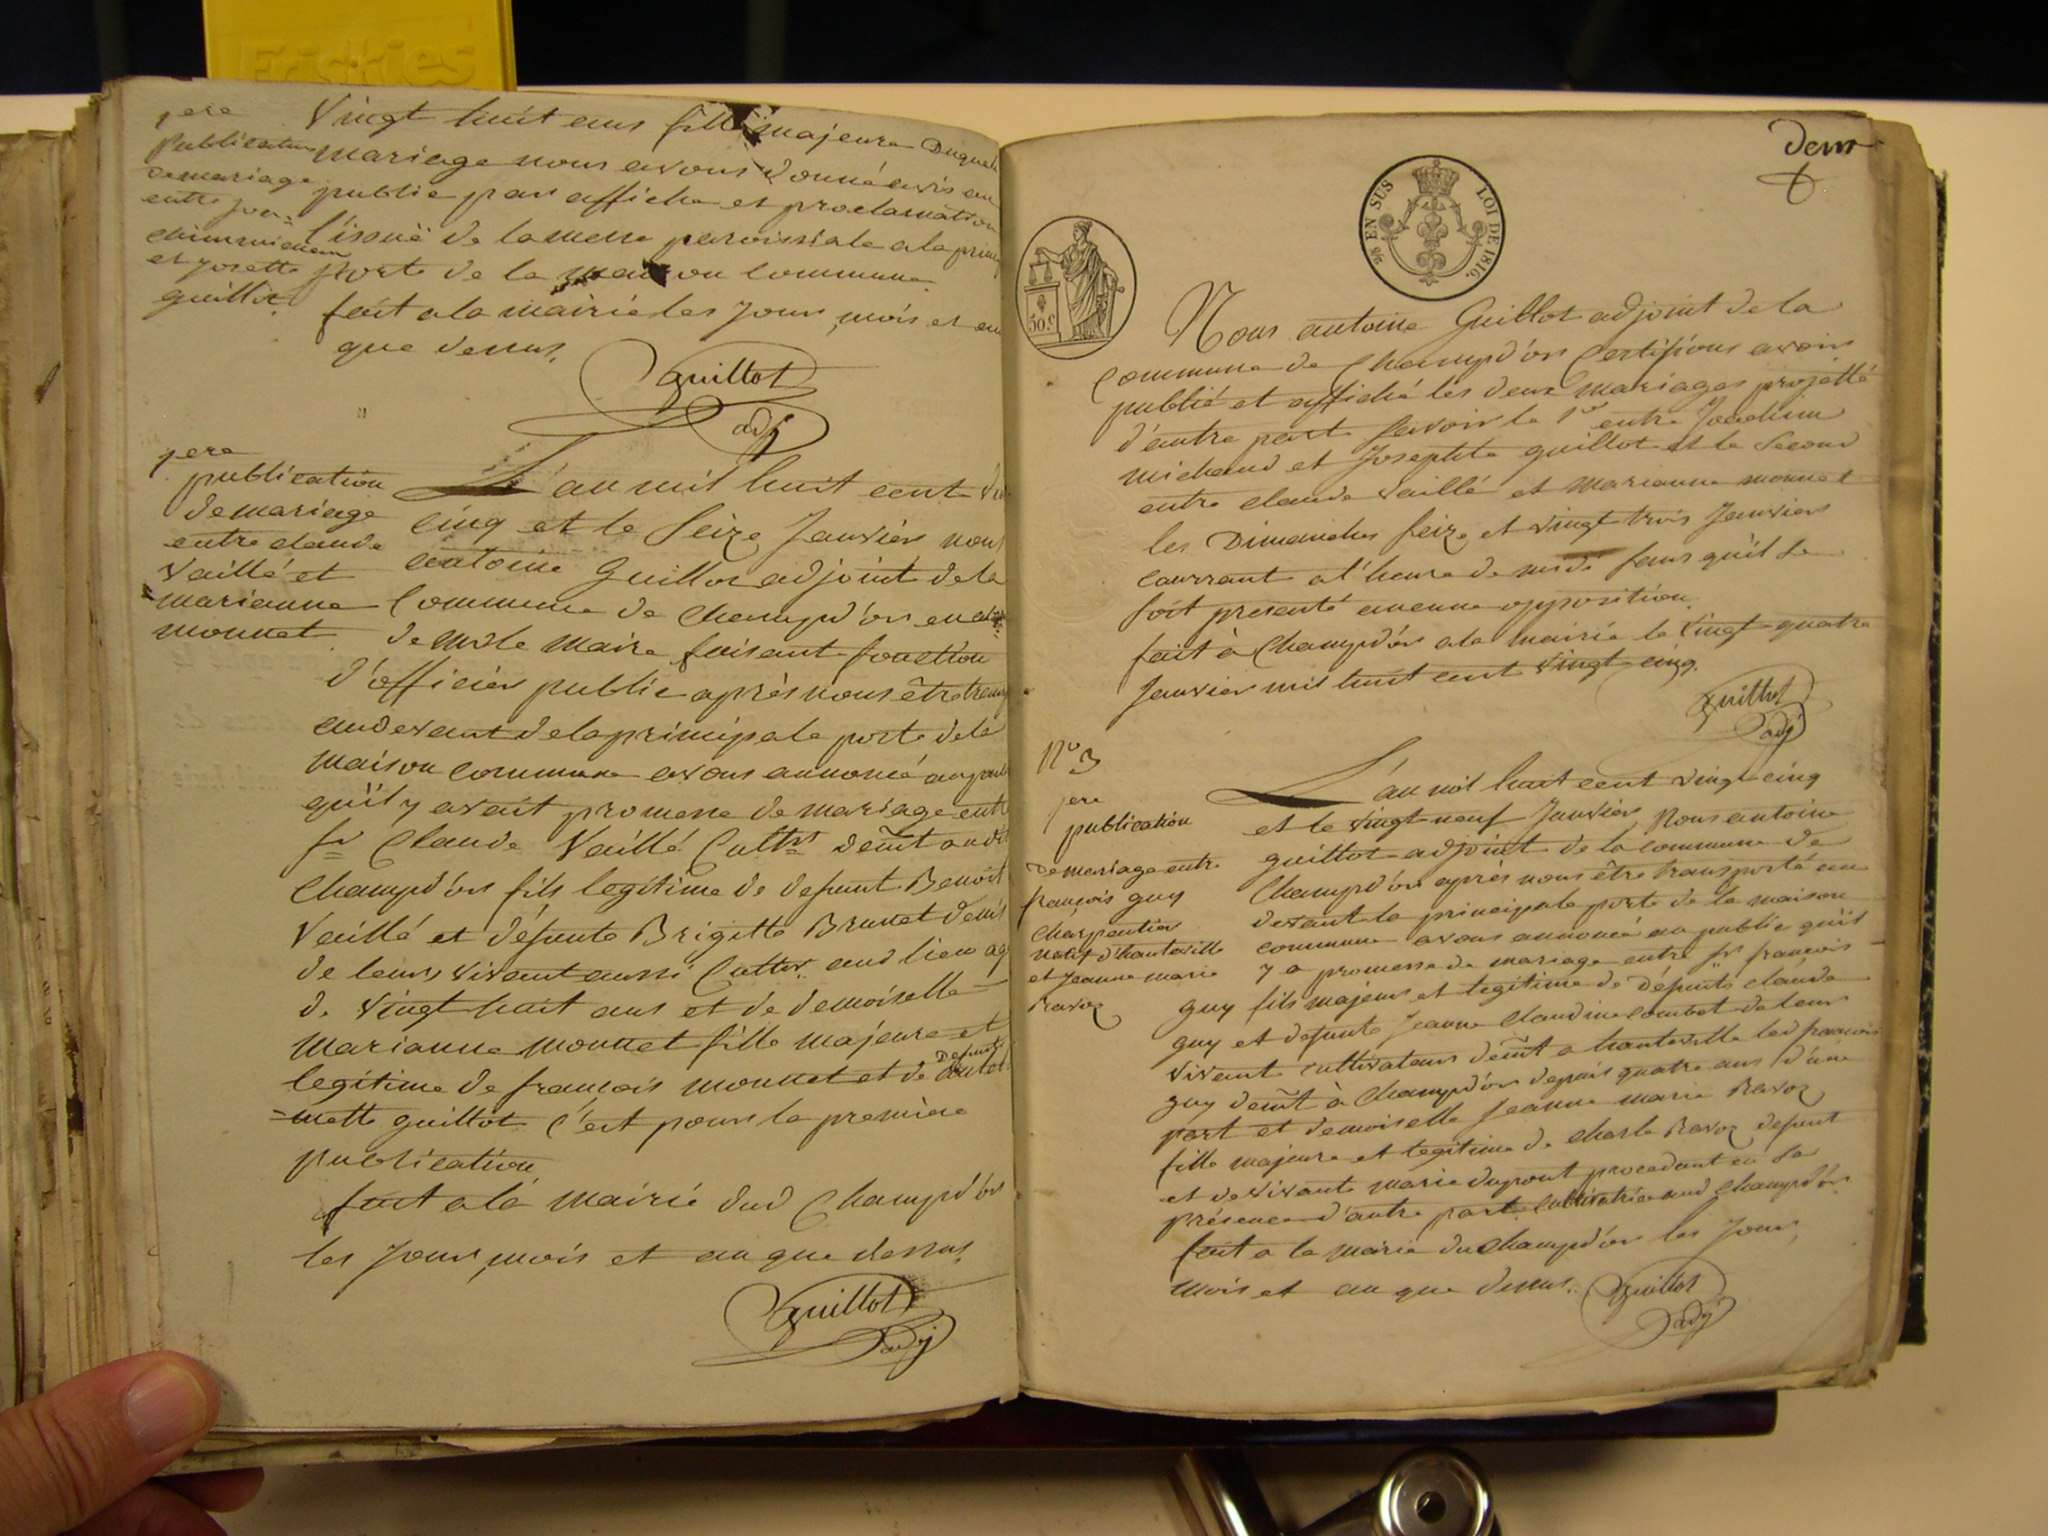 Friskies
1ere
Publication
de mariage
entre joa-
chim michaud
et Josette
guillot.
Vingt huit ans fille majeure Duquel
mariage nous avons donné avis au
public par affiche et proclamation
l'issuë de la messe paroissiale a la prin
porte de la maison commune.
fait a la mairie les Jour, mois et an
que dessus.
Guillot
adj
1ere
publication
de mariage
entre claude
Vaillé et
marianne
monnet.
L'an mil huit cent
cinq et le Seize Janvier nous
antoine Guillot adjoint de la
Commune de Champd'or en
de Mr le maire faisant fonction
d'officier public après nous être
au devant de la principale porte de la
maison commune avons annoncé au
qu'il y avait promesse de mariage entre
sr Claude Vaillé Cultr demt aud
Champd'or fils legitime de defunt Benoit
Vaillé et défunte Brigitte Brunet
de leur vivant aussi Cultr. aud lieu
de Vingt huit ans et de demoiselle
Marianne monnet fille majeure et
Defunte
legitime de françois monnet et de
=mette guillot c'est pour la première
publication
fait a la mairie dud Champd'or
les Jour, mois et an que dessus.
Guillot
adj
deux
2es EN SUS LOI DE 1816.
50c
Nous antoine Guillot adjoint de la
Commune de Champd'or Certifions avoir
publié et affiché les deux mariages projetté
d'autre part savoir le 1er entre Joachim
michaud et Josephte guillot et le Second
entre claude Vaillé et marianne monnet
les Dimanches Seize et Vingt trois Janvier
courrant a l'heure de midi sans qu'il se
soit presenté aucune opposition.
fait à Champd'or a la mairie le Vingt-quatre
Janvier mil huit cent Vingt cinq.
Guillot
adj
No 3
1ere
publication
de mariage entre
françois guy
Charpentier
natif d'hauteville
et Jeanne marie
Ravoz
L'an mil huit cent vingt cinq
et le Vingt neuf Janvier, Nous antoine
guillot adjoint de la commune de
Champd'or après nous être transporté au
devant la principale porte de la maison
commune avons annoncé au public qu'il
y a promesse de mariage entre sr françois
guy fils majeur et legitime de défunts claude
guy et defunte Jeanne Claudine combet de leur
vivant cultivateurs demt a hauteville led françois
guy demt à Champd'or depuis quatre ans d'une
part et demoiselle Jeanne marie Ravoz
fille majeure et legitime de charle Ravoz defunt
et de vivante marie dupont procedant en sa
présence d'autre part. Cultivatrice aud Champd'or
fait a la mairie du Champd'or les Jour,
mois et an que dessus.
Guillot
adj